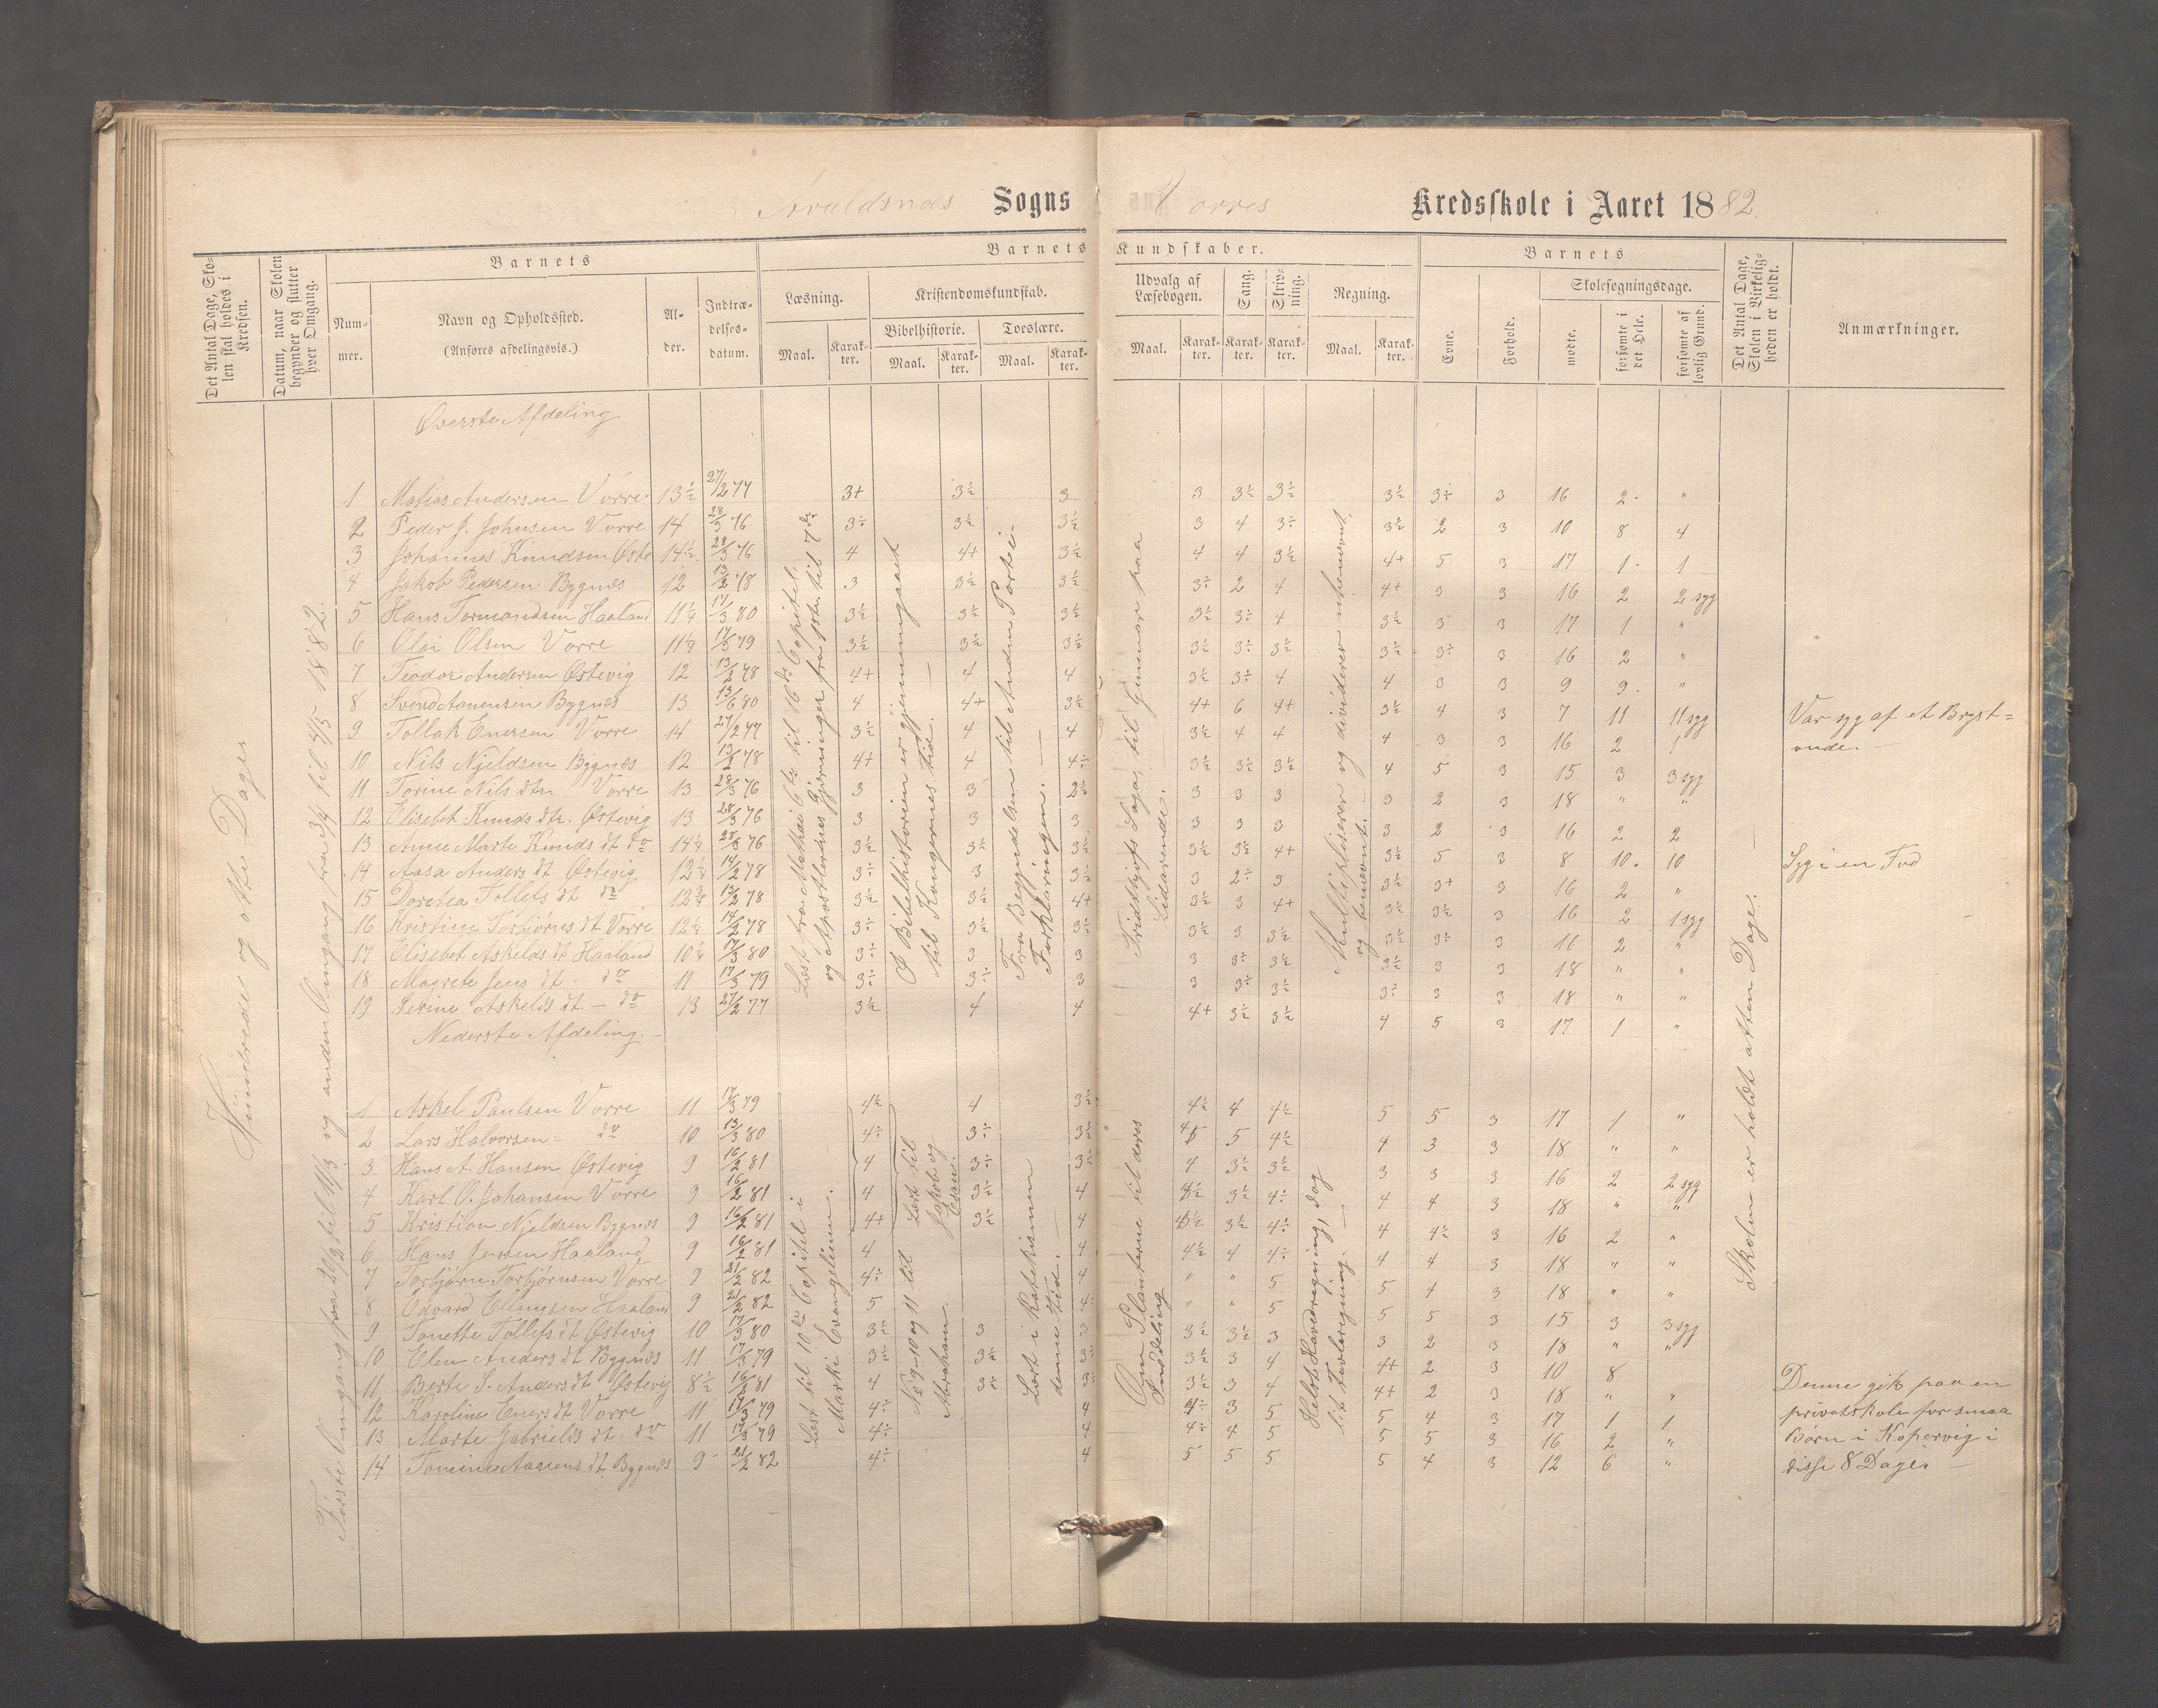 Avaldsnes Sogns Vorres Kredsskole i Aaret 1882.
Det Antal Dage, Skolen skal holdes i Kredsen.
Datum, naar Skolen begynder og slutter hver Omgang.
Barnets
Nummer.
Navn og Opholdssted.
(Anføres afdelingsvis.)
Alder.
Indtrædelsesdatum.
Barnets Kundskaber.
Læsning.
Maal. Karakter.
Kristendomskundskab.
Bibelhistorie. Troeslære.
Maal. Karakter. Maal. Karakter.
Udvalg af Læsebogen.
Maal. Karakter.
Sang. Karakter.
Skrivning. Karakter.
Regning.
Maal. Karakter.
Barnets
Evne.
Forhold.
Skolesøgningsdage.
mødte.
forsømte i det Hele.
forsømte af lovlig Grund.
Det Antal Dage, Skolen i Virkeligheden er holdt.
Anmærkninger.
Hundrede og otte Dage
Første Omgang fra 20/2 til 11/3 og anden Omgang fra 3/4 til 4/5 1882.
Øverste Afdeling
1 Matias Andersen Vorre 13½ 27/2 77 3+ 3½ 3 3 3½ 3½ 3½ 3÷ 3 16 2 "
2 Peder J. Johnsen Vorre 14 28/3 76 3÷ 3½ 3½ 3 4 3÷ 3½ 2 3 10 8 4
3 Johannes Knudsen Øste 14½ 28/3 76 4 4+ 3½ 4 4 3½ 4+ 5 3 17 1 1
4 Jakob Pedersen Bygnes 12 13/2 78 3 3½ 3½ 3÷ 2 4 4+ 3 3 16 2 2 syg
5 Hans Tormondsen Haaland 11¼ 17/3 80 3½ 3½ 3½ 3½ 3÷ 4 3½ 3 3 17 1 "
6 Olai Olsen Vorre 11¼ 17/3 79 3½ 3½ 3½ 3½ 3÷ 3½ 3½ 3÷ 3 16 2 "
7 Teodor Andersen Østevig 12 13/2 78 4+ 4 4 3½ 3÷ 4 4 3 3 9 9 "
8 Svend Aanensen Bygnes 13 13/6 80 4 4+ 3½ 4+ 6 4+ 3½ 4 3 7 11 11 syg Var syg af et Bryst=
9 Tollak Enersen Vorre 14 27/2 77 3½ 4 4 3½ 4 4 4 3 3 16 2 onde.
10 Nils Njeldsen Bygnes 12 13/2 78 4+ 4 4÷ 3½ 3½ 3½ 4 5 3 15 3 3 syg
11 Torine Nils dtr Vorre 13 28/3 76 3 3 2½ 3 3 3 3 2 3 18 " "
12 Elisebet Knuds dtr. Østevig 13 28/3 76 3 3 3 3 3 3 3 2 3 16 2 2
13 Anne Marte Knuds dt do 14¼ 28/3 76 3½ 3½ 3½ 3½ 3½ 4+ 3½ 5 3 8 10. 10 Syg i en Fod
14 Aasa Anders dt Østevig 12¼ 14/2 78 3÷ 3 3½ 3 2÷ 3 3½ 3+ 3 16 2 "
15 Doretea Tollefs dt do 12¾ 13/2 78 3½ 3½ 4+ 3½ 3 4+ 3½ 3½ 3 16 2 1 syg
16 Kristine Torbjørns dt Vorre 12¼ 14/2 78 3÷ 3½ 3½ 3½ 3 3½ 3½ 3÷ 3 16 2 "
17 Elisebet Askelds dt Haaland 10¼ 17/3 80 3÷ 3 3 3 3÷ 3½ 3½ 3 3 18 " "
18 Magrete Jens dt do 11 17/3 79 3÷ 3÷ 3 3 3÷ 3½ 3÷ 3 3 18 " "
19 Serine Askelds dt - do 13 27/2 77 3½ 4 4 4+ 3½ 3½ 4 5 3 17 1 "
Læst fra Matthæi 6te til 16de Capitel.
og Apostlernes Gjerninger fra 1ste til 7de
Af Bibelhistorien er gjennemgaaet
til Kongernes tid.
Fra Begyndelsen til Anden Part i
Forklaringen.
Fridthjofs Saga, til Gunnar paa
Lidarende.
Multipliserer og dividerer ubenævnt
og benævnt.
Nederste Afdeling.
1 Askel Paulsen Vorre 11 17/3 79 4½ 4 3½ 4½ 4 4½ 5 5 3 17 1 "
2 Lars Halvorsen do 10 13/3 80 4÷ 3÷ 3½ 5 5 4½ 4 3 3 18 " "
3 Hans A. Hansen Østevig 9 16/2 81 4 3÷ 3½ 4 3½ 3½ 3 3 3 16 2 2 syg
4 Karl O. Johansen Vorre 9 16/2 81 4 3½ 4 4½ 3½ 4÷ 4 4 3 18 " "
5 Kristian Njeldsen Bygnes 9 16/2 81 4+ 3½ 4 4½ 3½ 4÷ 4 4½ 3 16 2 "
6 Hans Jensen Haaland 9 16/2 81 4 4 4½ 4 4÷ 4 4 3 18 " "
7 Torbjørn Torbjørnsen Vorre 9 21/2 82 4÷ 4 " " 5 5 4 3 18 " "
8 Edvard Ellingsen Haaland 9 21/2 82 5 4÷ " " 5 5 5 3 15 3 3 syg
9 Tonette Tollefs dt Østevig 10 17/3 80 3½ 3 3 3½ 3½ 3 3 2 3 18 " "
10 Elen Anders dt Bygnes 11 17/3 79 3½ 3½ 3÷ 3½ 3 4 4+ 2 3 10 8
11 Berte S. Anders dt Østevig 8½ 16/2 81 4 3÷ 3÷ 3½ 3 4 4+ 2 3 18 " "
12 Karoline Eners dt Vorre 11 17/3 79 4÷ 4 4÷ 3 5 5 4 3 17 1 1
13 Marte Gabriels dt do 11 17/3 79 4÷ 4 4÷ 4 5 5 5 3 16 2 "
14 Tomine Aanens dt Bygnes 9 21/2 82 4÷ 4 5 5 5 5 4 3 12 6 "
Læst til 10de Capitel i
Marki Evangelium.
Læst til
Jakob og
Esau.
No 9-10 og 11 til
Abraham
Læst i Katekismen
denne tid.
Om Planterne til deres
Inddeling
Helst Hovedregning, dog
lit Tavleregning.
Skolen er holdt atten Dage.
Denne gik paa en
privatskole for smaa
Børn i Kopervig i
disse 8 Dage.